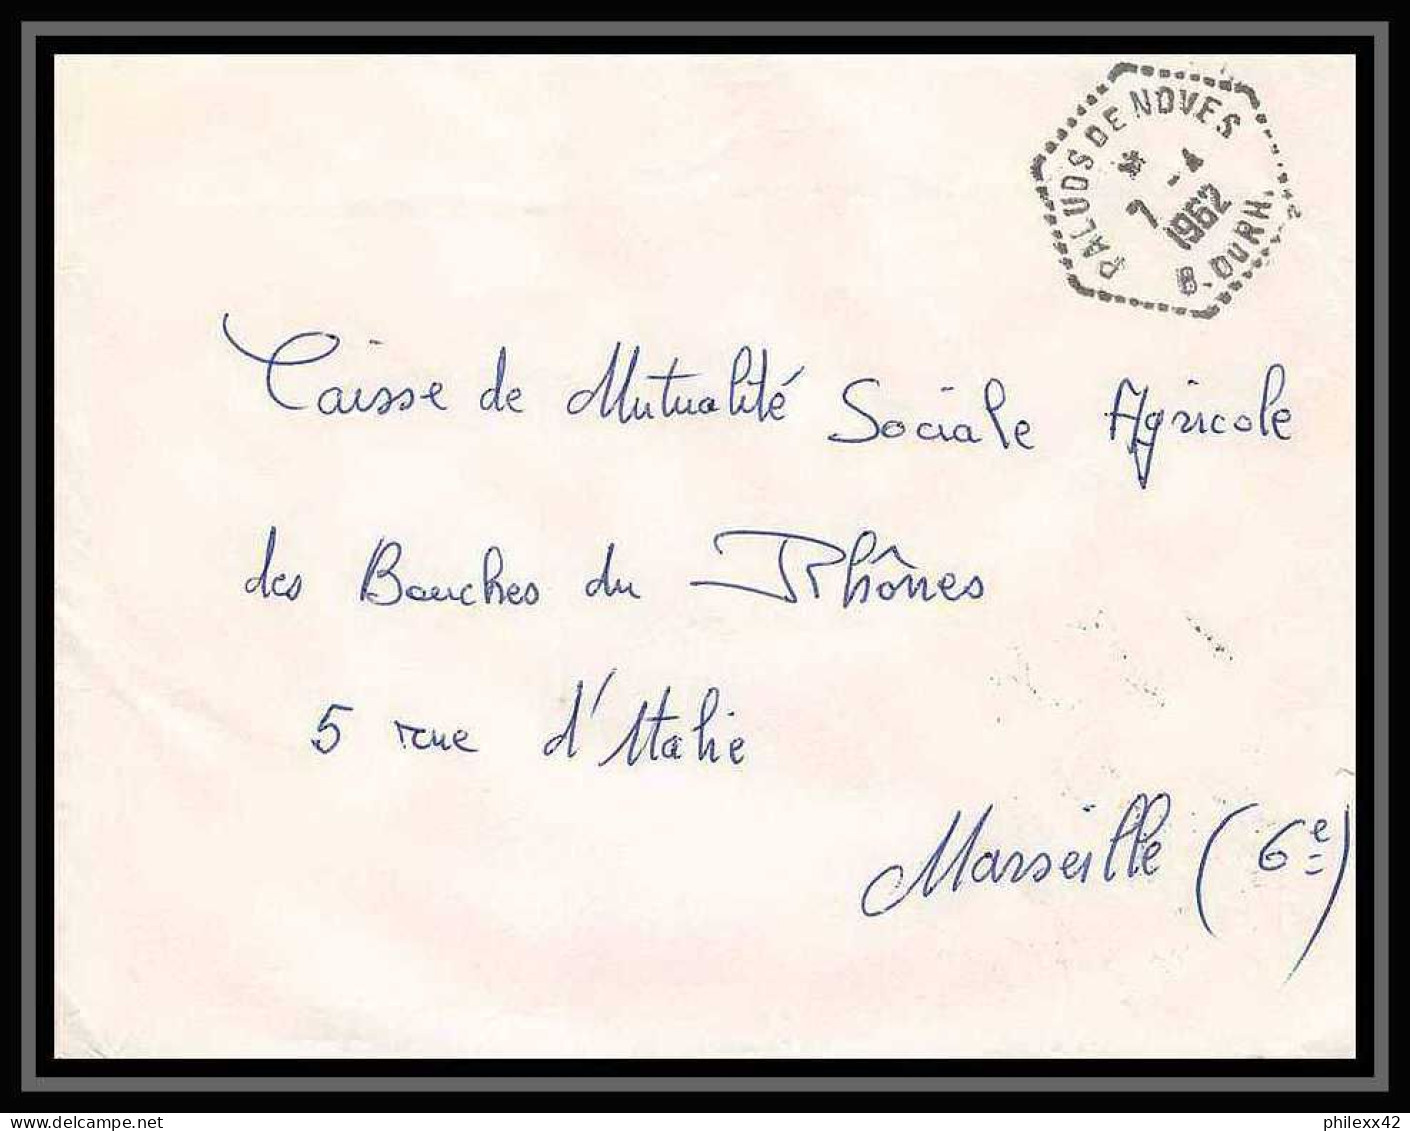 PALUDS DE NOVES
* -4
7
1962
B. DU RH.
Caisse de Mutualité Sociale Agricole
des Bouches du Rhônes
5 rue d'Italie
Marseille (6e)
delcampe.net
philexx42